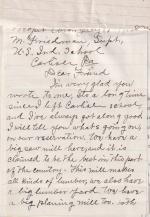 M. Friedman, Supt,
U.S. Ind. School
Carlisle Pa
Dear Friend
I'm very glad you
wrote to me. It's a long time
since I left Carlisle school,
and I've always got along good.
I will tell you what's going on
on our reservation. We have a
big saw mill here and it is
claimed to be the best in this part
of the country. This mill makes
all kinds of lumber, we also have
a big lumber yard. We have
a big planing mill too. with